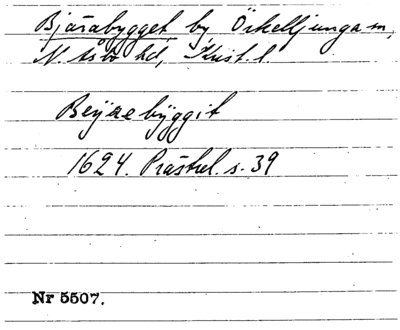 Bjärabygget by, Örkelljunga sn,
N. Åsbo hd, Krist. l.
Beijae byggit
1624. Prästrel. s. 39
Nr 5507.